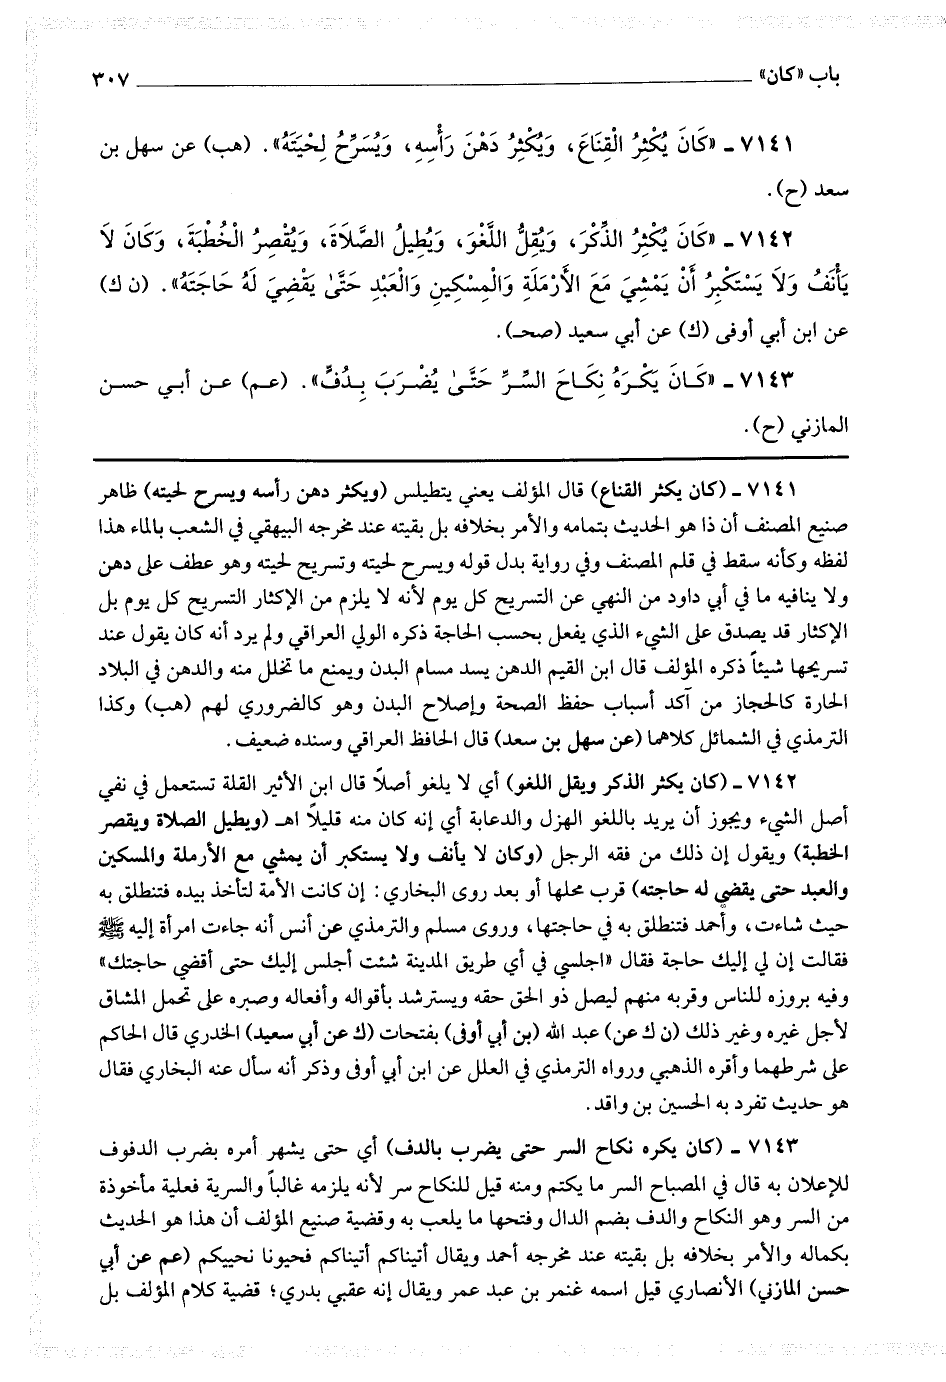 باب «كان» ٣٠٧
٧١٤١ ـ «كَانَ يُكْثِرُ الْقِنَاعَ، وَيُكْثِرُ دَهْنَ رَأْسِهِ، وَيُسَرِّحُ لِحْيَتَهُ». (هب) عن سهل بن
سعد (ح).
٧١٤٢ ـ «كَانَ يُكْثِرُ الذِّكْرَ، وَيُقِلُّ اللَّغْوَ، وَيُطِيلُ الصَّلَاةَ، وَيُقْصِرُ الْخُطْبَةَ، وَكَانَ لَا
يَأْنَفُ وَلَا يَسْتَكْبِرُ أَنْ يَمْشِيَ مَعَ الأَرْمَلَةِ وَالْمِسْكِينِ وَالْعَبْدِ حَتَّىٰ يَقْضِيَ لَهُ حَاجَتَهُ». (ن ك)
عن ابن أبي أوفى (ك) عن أبي سعيد (صحـ).
٧١٤٣ ـ «كَـانَ يَكْـرَهُ نِكَـاحَ السِّـرِّ حَتَّـىٰ يُضْـرَبَ بِـدُفٍّ». (عـم) عـن أبـي حسـن
المازني (ح).
٧١٤١ ـ (كان يكثر القناع) قال المؤلف يعني يتطيلس (ويكثر دهن رأسه ويسرح لحيته) ظاهر
صنيع المصنف أن ذا هو الحديث بتمامه والأمر بخلافه بل بقيته عند مخرجه البيهقي في الشعب بالماء هذا
لفظه وكأنه سقط في قلم المصنف وفي رواية بدل قوله ويسرح لحيته وتسريح لحيته وهو عطف على دهن
ولا ينافيه ما في أبي داود من النهي عن التسريح كل يوم لأنه لا يلزم من الإكثار التسريح كل يوم بل
الإكثار قد يصدق على الشيء الذي يفعل بحسب الحاجة ذكره الولي العراقي ولم يرد أنه كان يقول عند
تسريحها شيئاً ذكره المؤلف قال ابن القيم الدهن يسد مسام البدن ويمنع ما تخلل منه والدهن في البلاد
الحارة كالحجاز من آكد أسباب حفظ الصحة وإصلاح البدن وهو كالضروري لهم (هب) وكذا
الترمذي في الشمائل كلاهما (عن سهل بن سعد) قال الحافظ العراقي وسنده ضعيف.
٧١٤٢ ـ (كان يكثر الذكر ويقل اللغو) أي لا يلغو أصلاً قال ابن الأثير القلة تستعمل في نفي
أصل الشيء ويجوز أن يريد باللغو الهزل والدعابة أي إنه كان منه قليلاً اهـ (ويطيل الصلاة ويقصر
الخطبة) ويقول إن ذلك من فقه الرجل (وكان لا يأنف ولا يستكبر أن يمشي مع الأرملة والمسكين
والعبد حتى يقضي له حاجته) قرب محلها أو بعد روى البخاري: إن كانت الأمة لتأخذ بيده فتنطلق به
حيث شاءت، وأحمد فتنطلق به في حاجتها، وروى مسلم والترمذي عن أنس أنه جاءت امرأة إليه ﷺ
فقالت إن لي إليك حاجة فقال «اجلسي في أي طريق المدينة شئت أجلس إليك حتى أقضي حاجتك»
وفيه بروزه للناس وقربه منهم ليصل ذو الحق حقه ويسترشد بأقواله وأفعاله وصبره على تحمل المشاق
لأجل غيره وغير ذلك (ن ك عن) عبد الله (بن أبي أوفى) بفتحات (ك عن أبي سعيد) الخدري قال الحاكم
على شرطهما وأقره الذهبي ورواه الترمذي في العلل عن ابن أبي أوفى وذكر أنه سأل عنه البخاري فقال
هو حديث تفرد به الحسين بن واقد.
٧١٤٣ ـ (كان يكره نكاح السر حتى يضرب بالدف) أي حتى يشهر أمره بضرب الدفوف
للإعلان به قال في المصباح السر ما يكتم ومنه قيل للنكاح سر لأنه يلزمه غالباً والسرية فعلية مأخوذة
من السر وهو النكاح والدف بضم الدال وفتحها ما يلعب به وقضية صنيع المؤلف أن هذا هو الحديث
بكماله والأمر بخلافه بل بقيته عند مخرجه أحمد ويقال أتيناكم أتيناكم فحيونا نحييكم (عم عن أبي
حسن المازني) الأنصاري قيل اسمه غنمر بن عبد عمر ويقال إنه عقبي بدري؛ قضية كلام المؤلف بل